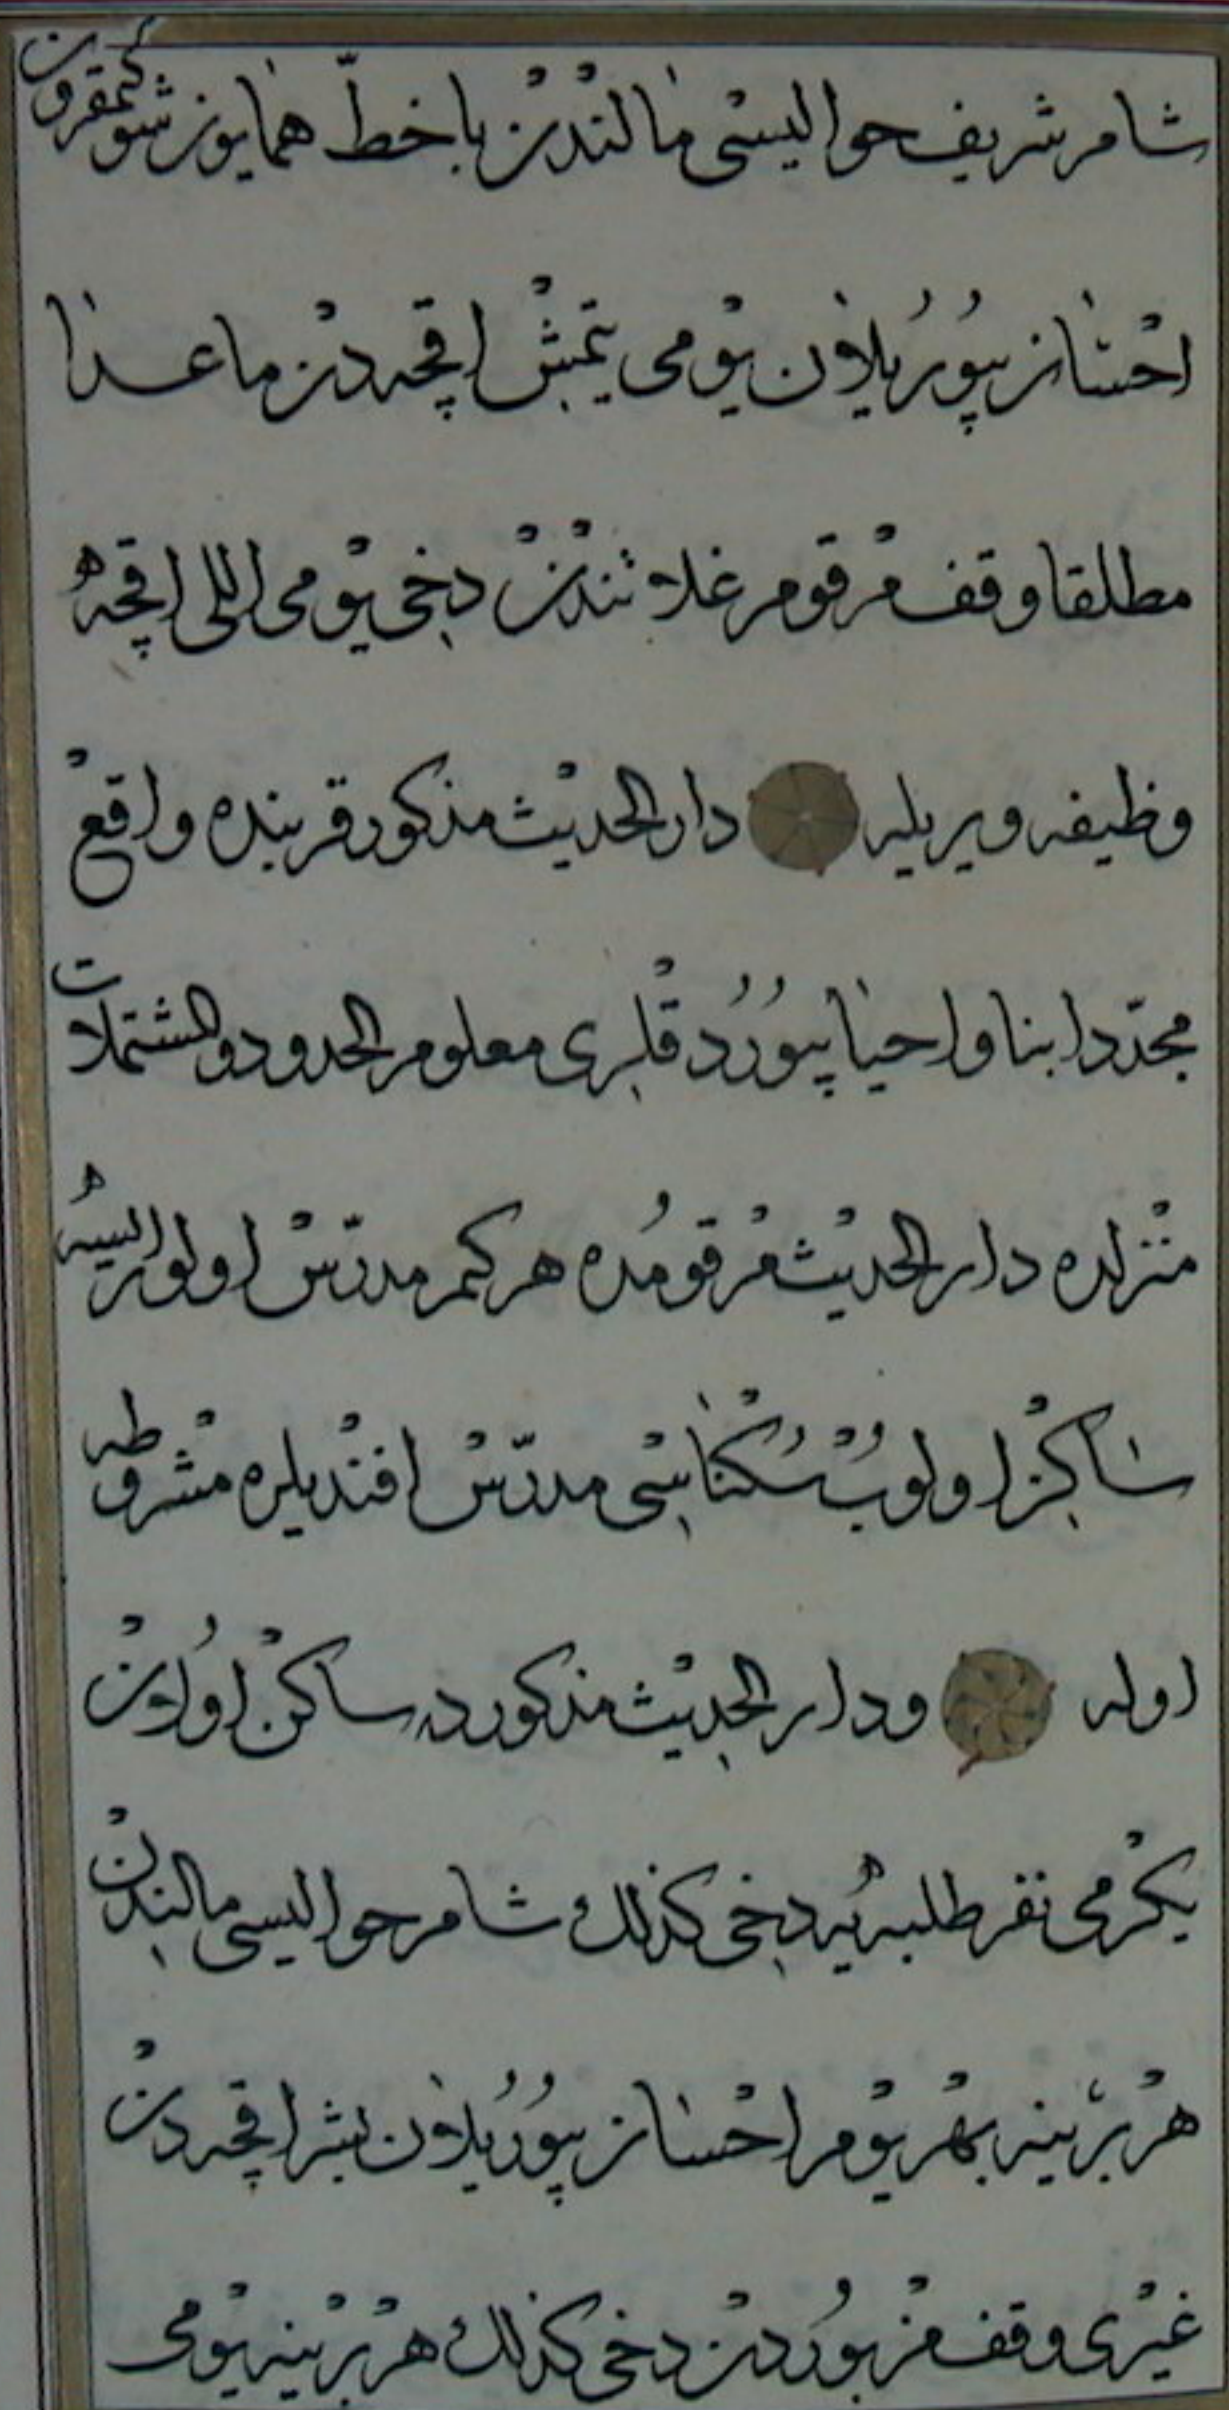 شام شريف حواليسى مالندن با خطّ همايون شوكتمقرون
احسان بيوريلان يومى يتمش اقچه دن ماعدا
مطلقا وقف مرقوم غلاتندن دخى يومى اللى اقچهٔ
وظيفه ويريله دار الحديث مذكور قربنده واقع
مجدّدا بنا و احيا بيوردقلرى معلوم الحدود والمشتملات
منزلده دار الحديث مرقومده هر كم مدرّس اولور ايسه
ساكن اولوب سكناسى مدرّس افنديلره مشروطه
اوله ودار الحديث مذكورده ساكن اولان
يكرمى نفر طلبهٔ يه دخى كذلك شام حواليسى مالندن
هر برينه بهر يوم احسان بيوريلان بشر اقچه دن
غيرى وقف مزبوردن دخى كذلك هر برينه يومى